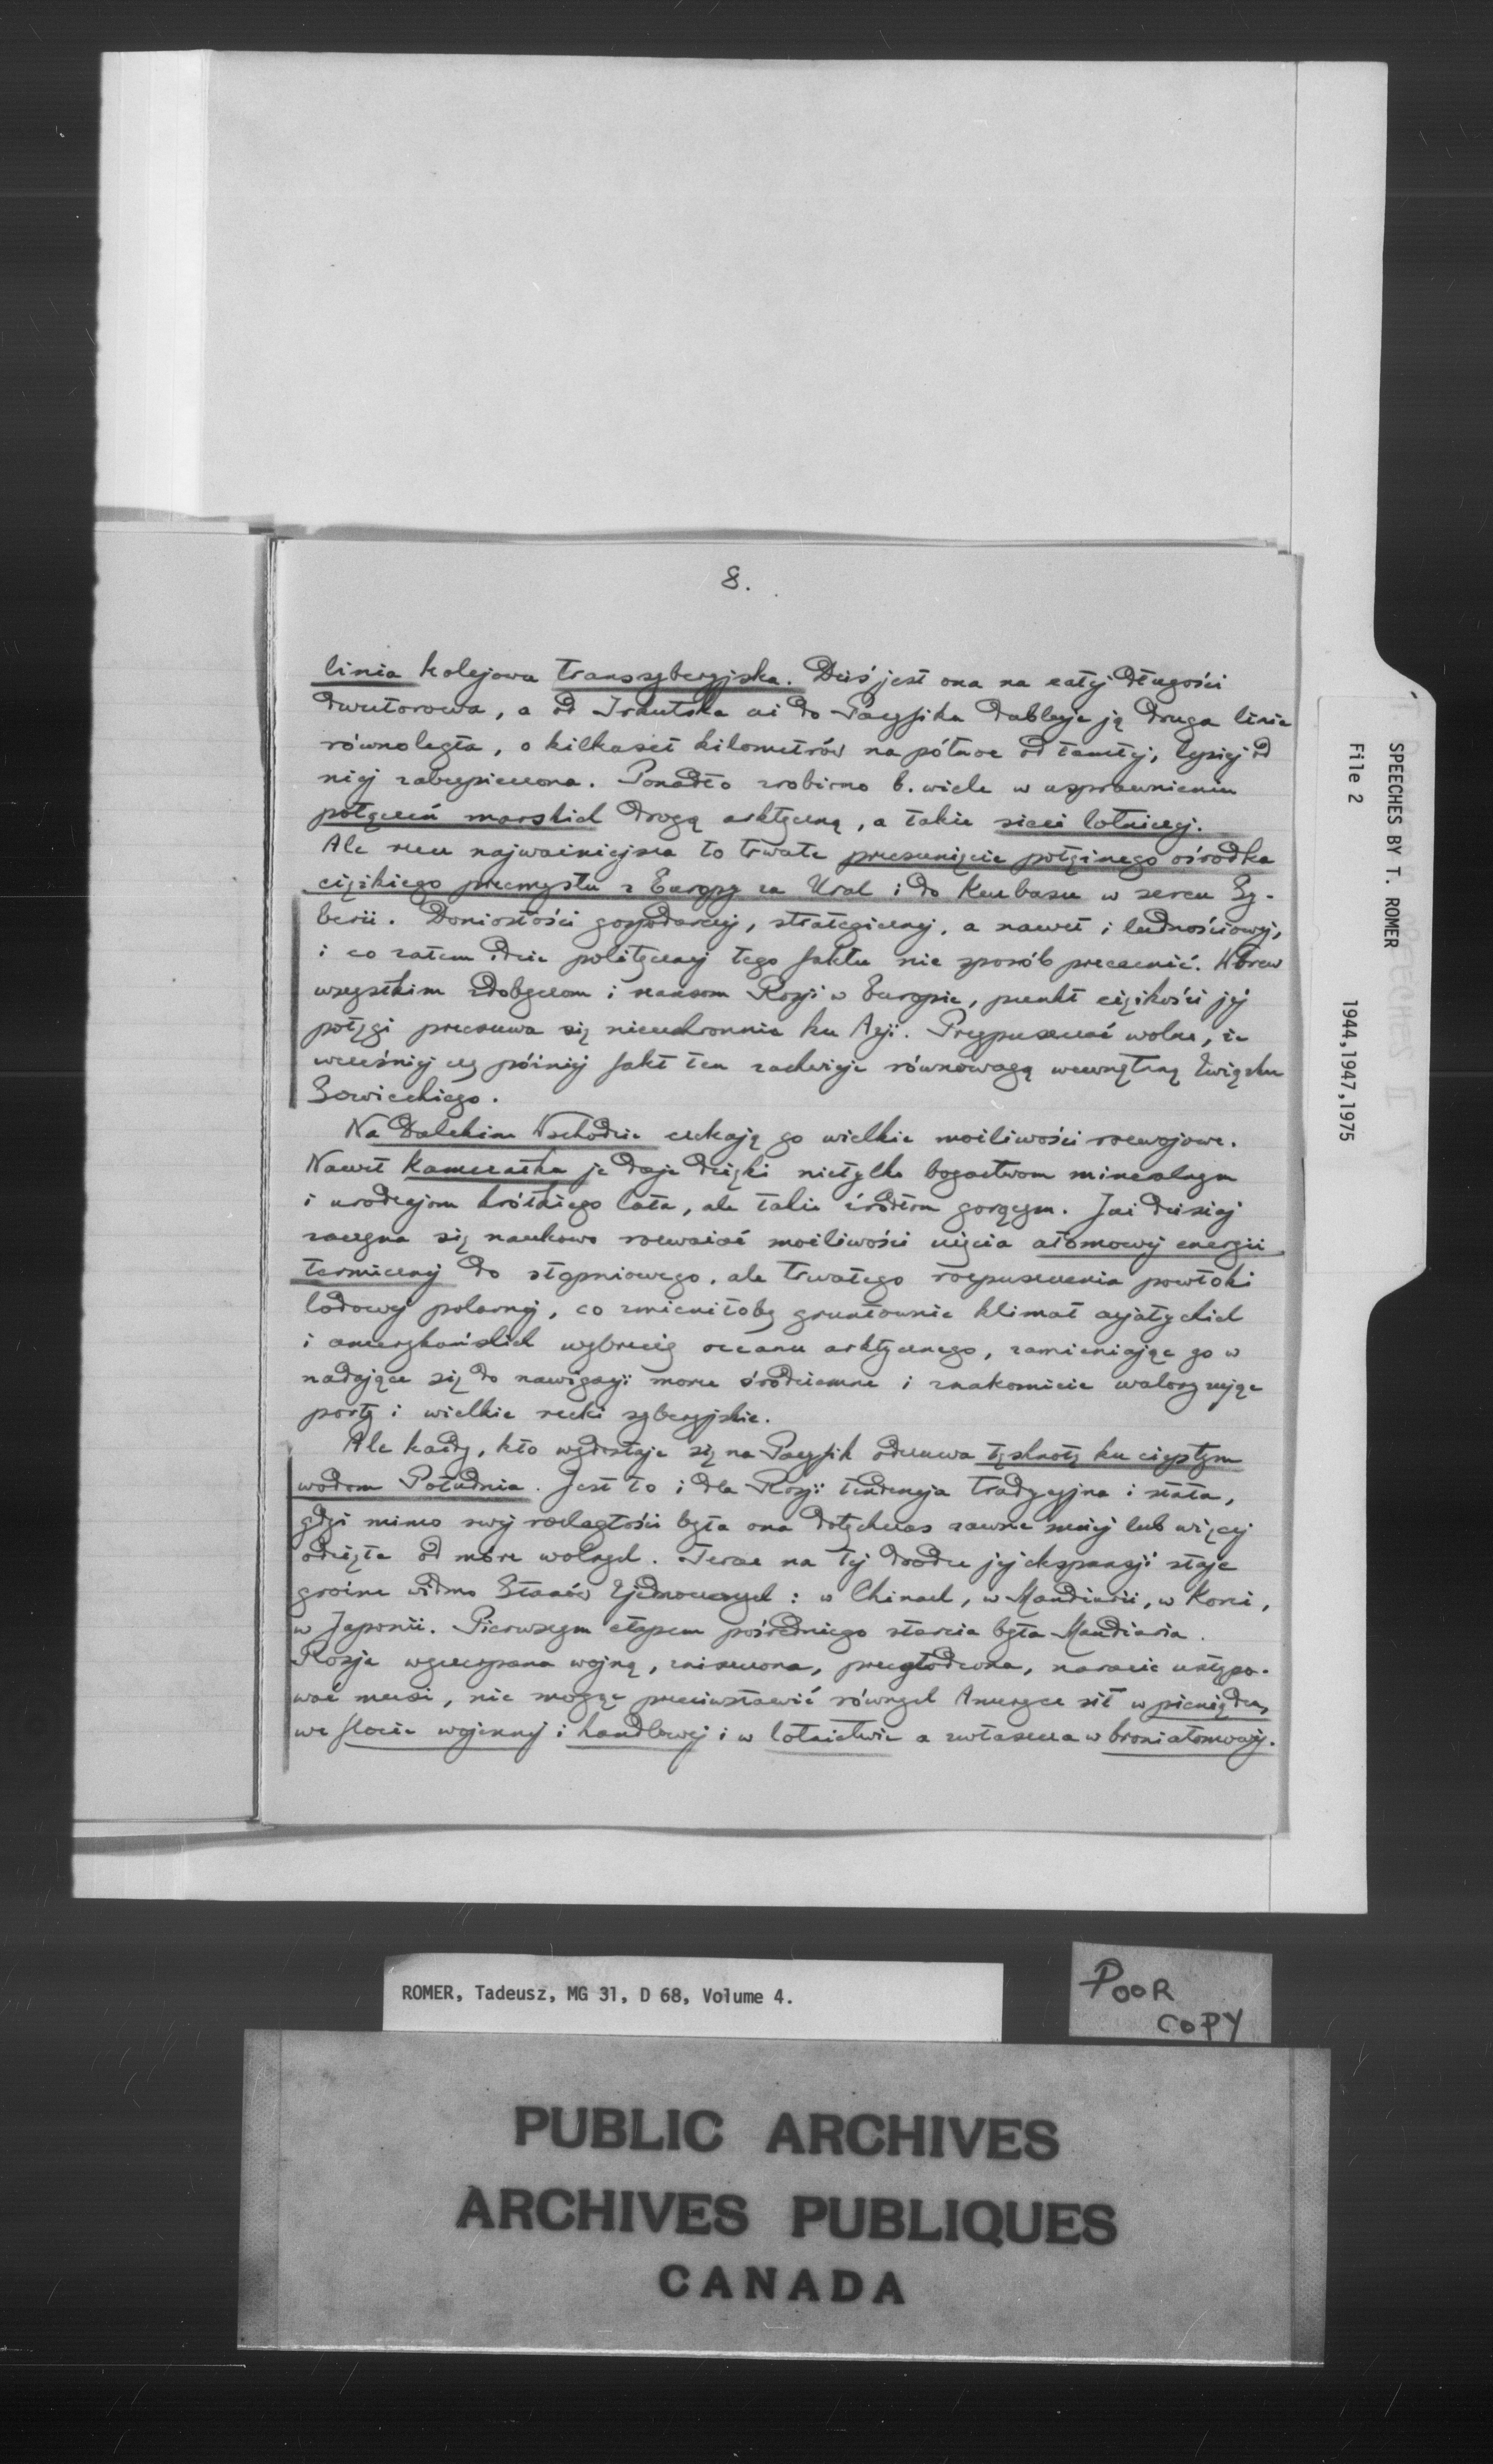 8.
linia kolejowa transsyberyjska. Dziś jest ona na całej długości
dwutorowa, a od Irkutska aż do Pacyfiku dubluje ją druga linia
równoległa, o kilkaset kilometrów na północ od tamtej, lepiej od
niej zabezpieczona. Ponadto zrobiono b. wiele w usprawnieniu
połączeń morskich drogą arktyczną, a także sieci lotniczej.
Ale rzecz najważniejsza to trwałe przesunięcie potężnego ośrodka
ciężkiego przemysłu z Europy za Ural i do Kuzbasu w sercu Sy-
berii. Doniosłości gospodarczej, strategicznej, a nawet i ludnościowej,
i co zatem idzie politycznej tego faktu nie sposób przecenić. Wbrew
wszystkim zdobyczom i szansom Rosji w Europie, punkt ciężkości jej
potęgi przesuwa się nieuchronnie ku Azji. Przypuszczać wolno, że
wcześniej czy później fakt ten zachwieje równowagą wewnętrzną Związku
Sowieckiego.
Na Dalekim Wschodzie czekają go wielkie możliwości rozwojowe.
Nawet Kamczatka je daje dzięki nietylko bogactwom mineralnym
i urodzajom krótkiego lata, ale także źródłom gorącym. Już dzisiaj
zaczyna się naukowo rozważać możliwości użycia atomowej energii
termicznej do stopniowego, ale trwałego rozpuszczenia powłoki
lodowej polarnej, co zmieniłoby gruntownie klimat azjatyckich
i amerykańskich wybrzeży oceanu arktycznego, zamieniając go w
nadające się do nawigacji morze śródziemne i znakomicie waloryzując
porty i wielkie rzeki syberyjskie.
Ale każdy, kto wydostaje się na Pacyfik odczuwa tęsknotę ku ciepłym
wodom Południa. Jest to i dla Rosji tendencja tradycyjna i stała,
gdyż mimo swej rozległości była ona dotychczas zawsze mniej lub więcej
odcięta od mórz wolnych. Teraz na tej drodze jej ekspansji staje
groźne widmo Stanów Zjednoczonych: w Chinach, w Mandżurii, w Korei,
w Japonii. Pierwszym etapem pośredniego starcia była Mandżuria.
Rosja wyczerpana wojną, zniszczona, przegłodzona, narazie ustępo-
wać musi, nie mogąc przeciwstawić równych Ameryce sił w pieniądzu,
we flocie wojennej i handlowej i w lotnictwie a zwłaszcza w broni atomowej.
SPEECHES BY T. ROMER
File 2
1944,1947,1975
ROMER, Tadeusz, MG 31, D 68, Volume 4.
POOR
COPY
PUBLIC ARCHIVES
ARCHIVES PUBLIQUES
CANADA